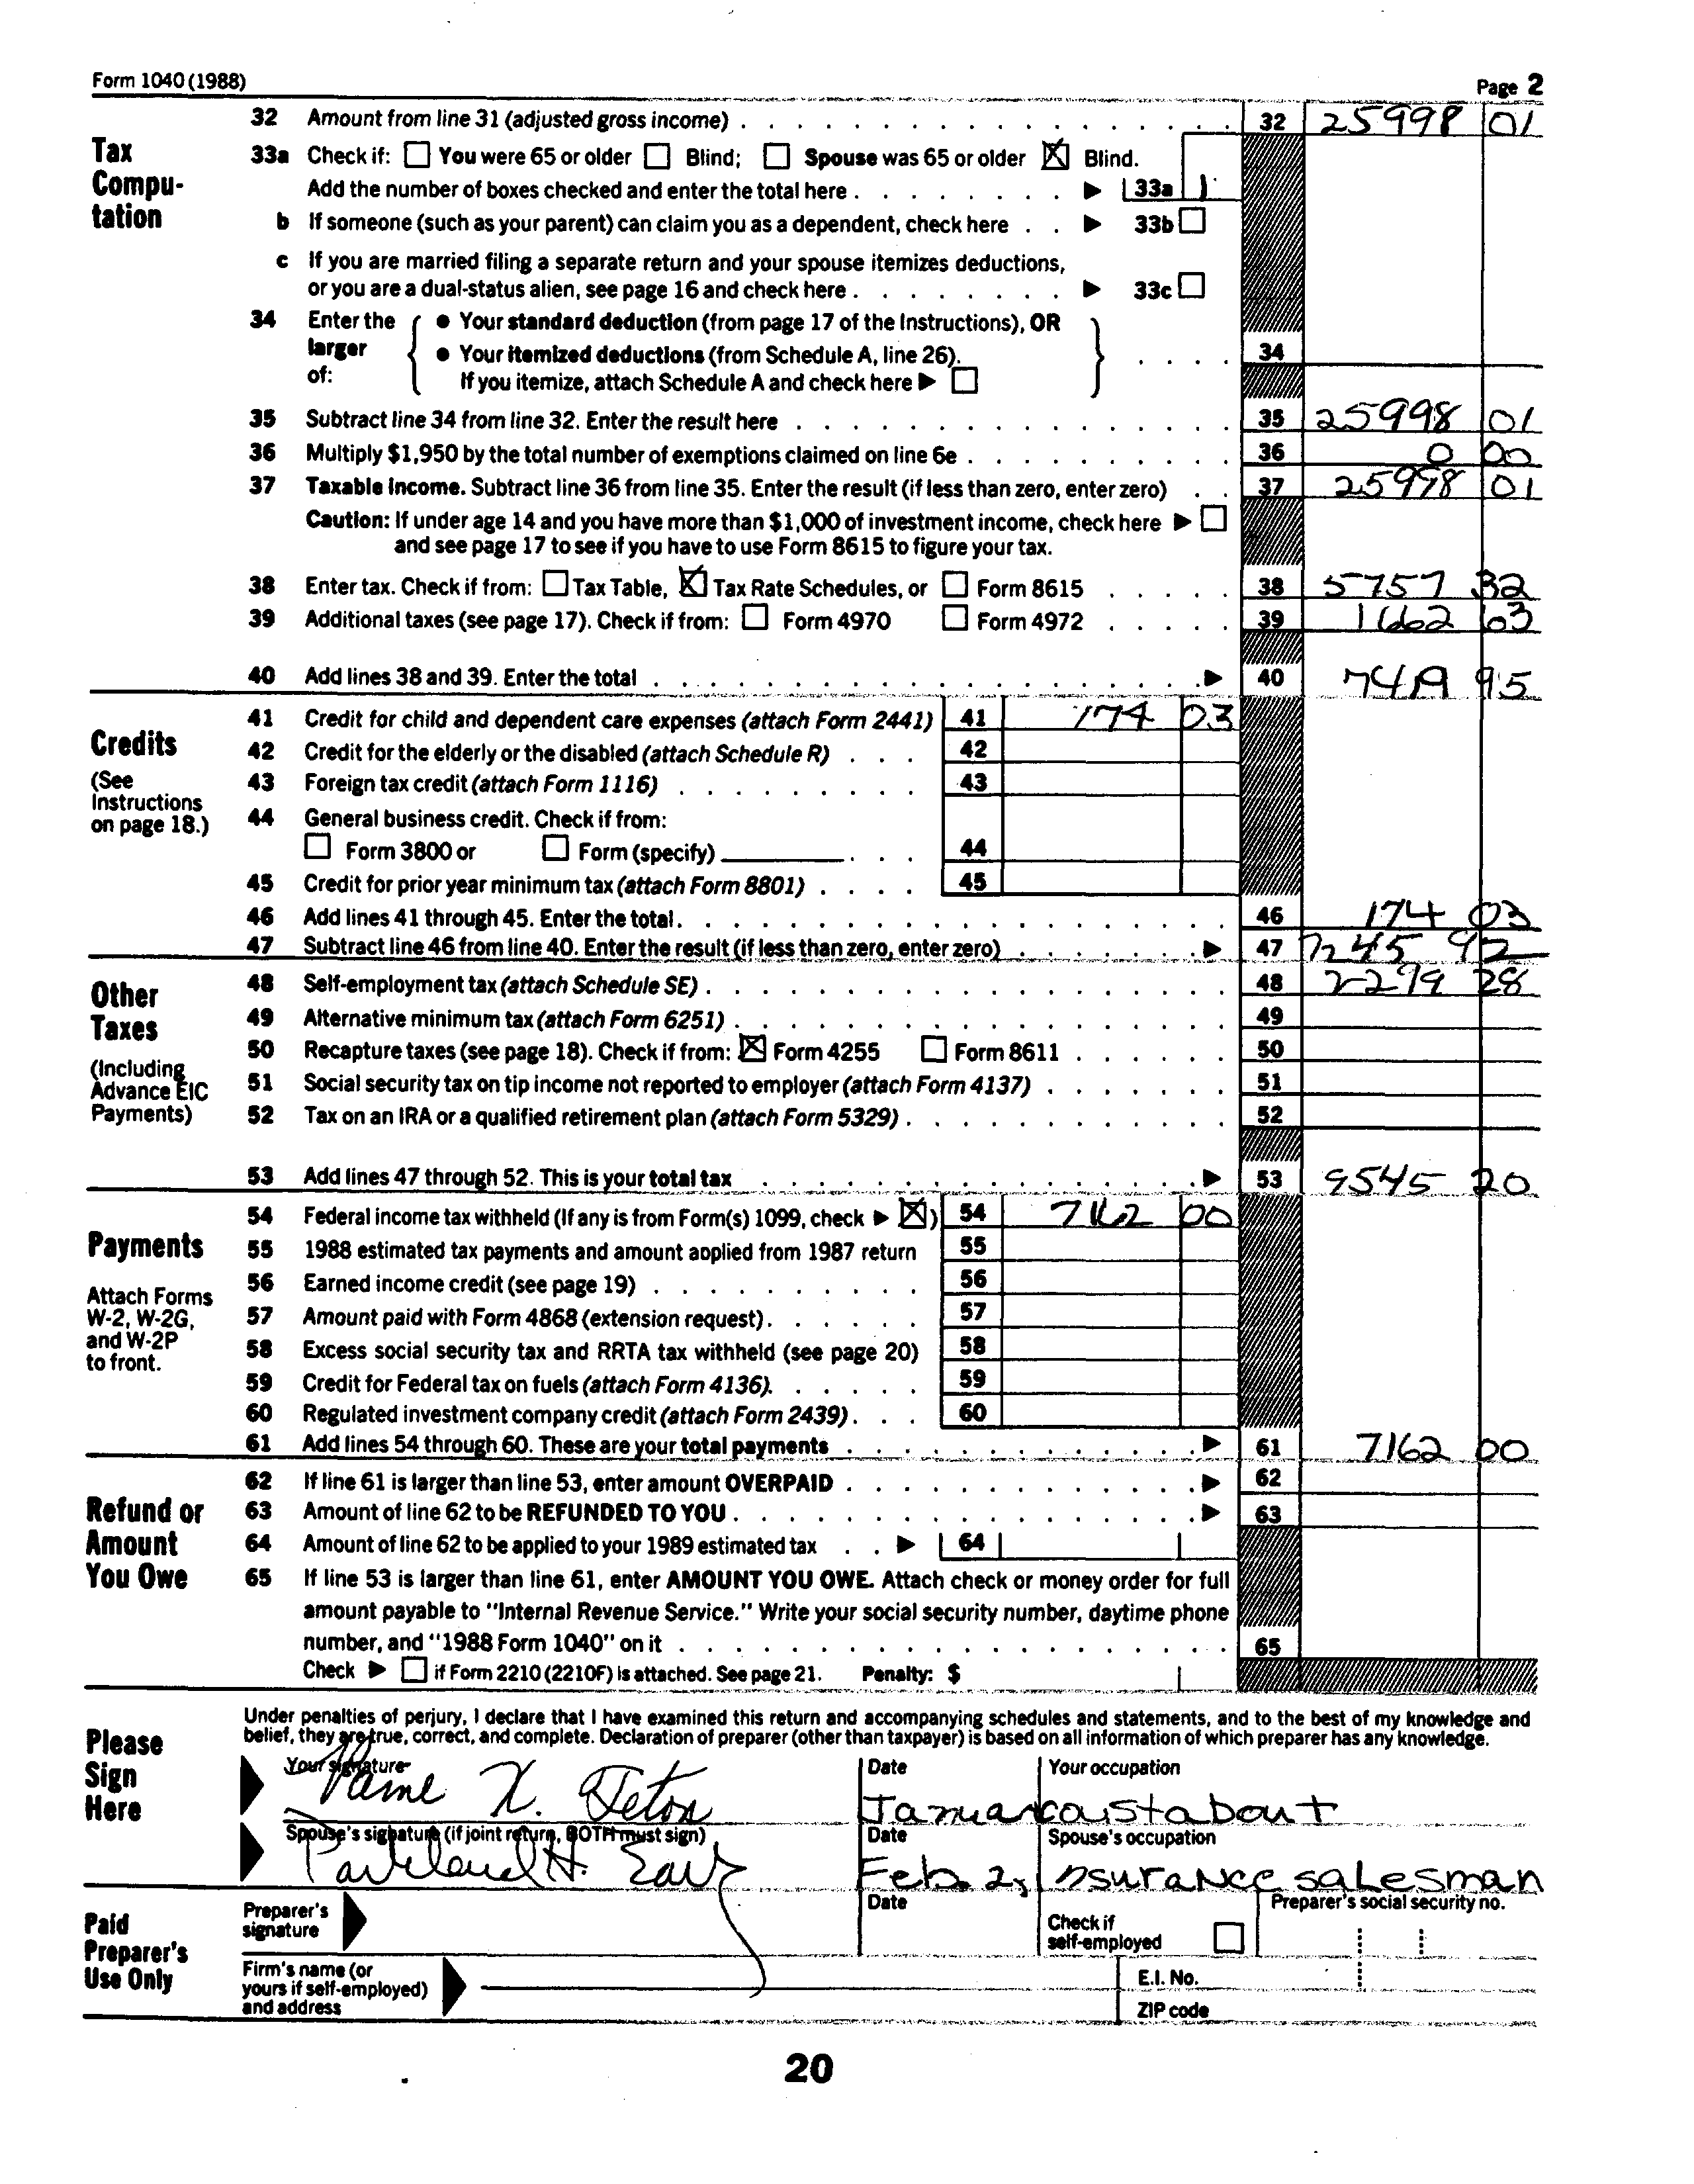 Form 1040 (1988) Page 2
Tax Computation
32 Amount from line 31 (adjusted gross income) 32 25998 01
33a Check if: ☐ You were 65 or older ☐ Blind; ☐ Spouse was 65 or older ☒ Blind.
Add the number of boxes checked and enter the total here ▶ 33a 1
b If someone (such as your parent) can claim you as a dependent, check here ▶ 33b ☐
c If you are married filing a separate return and your spouse itemizes deductions,
or you are a dual-status alien, see page 16 and check here ▶ 33c ☐
34 Enter the larger of: { ● Your standard deduction (from page 17 of the Instructions), OR
● Your itemized deductions (from Schedule A, line 26).
If you itemize, attach Schedule A and check here ▶ ☐ } 34
35 Subtract line 34 from line 32. Enter the result here 35 25998 01
36 Multiply $1,950 by the total number of exemptions claimed on line 6e 36 0 00
37 Taxable income. Subtract line 36 from line 35. Enter the result (if less than zero, enter zero) 37 25998 01
Caution: If under age 14 and you have more than $1,000 of investment income, check here ▶ ☐
and see page 17 to see if you have to use Form 8615 to figure your tax.
38 Enter tax. Check if from: ☐ Tax Table, ☒ Tax Rate Schedules, or ☐ Form 8615 38 5757 32
39 Additional taxes (see page 17). Check if from: ☐ Form 4970 ☐ Form 4972 39 1662 63
40 Add lines 38 and 39. Enter the total ▶ 40 7419 95
Credits
(See Instructions on page 18.)
41 Credit for child and dependent care expenses (attach Form 2441) 41 174 03
42 Credit for the elderly or the disabled (attach Schedule R) 42
43 Foreign tax credit (attach Form 1116) 43
44 General business credit. Check if from:
☐ Form 3800 or ☐ Form (specify) 44
45 Credit for prior year minimum tax (attach Form 8801) 45
46 Add lines 41 through 45. Enter the total 46 174 03
47 Subtract line 46 from line 40. Enter the result (if less than zero, enter zero) ▶ 47 7245 92
Other Taxes
(Including Advance EIC Payments)
48 Self-employment tax (attach Schedule SE) 48 2299 28
49 Alternative minimum tax (attach Form 6251) 49
50 Recapture taxes (see page 18). Check if from: ☒ Form 4255 ☐ Form 8611 50
51 Social security tax on tip income not reported to employer (attach Form 4137) 51
52 Tax on an IRA or a qualified retirement plan (attach Form 5329) 52
53 Add lines 47 through 52. This is your total tax ▶ 53 9545 20
Payments
Attach Forms W-2, W-2G, and W-2P to front.
54 Federal income tax withheld (If any is from Form(s) 1099, check ▶ ☒) 54 7162 00
55 1988 estimated tax payments and amount applied from 1987 return 55
56 Earned income credit (see page 19) 56
57 Amount paid with Form 4868 (extension request) 57
58 Excess social security tax and RRTA tax withheld (see page 20) 58
59 Credit for Federal tax on fuels (attach Form 4136) 59
60 Regulated investment company credit (attach Form 2439) 60
61 Add lines 54 through 60. These are your total payments ▶ 61 7162 00
Refund or Amount You Owe
62 If line 61 is larger than line 53, enter amount OVERPAID ▶ 62
63 Amount of line 62 to be REFUNDED TO YOU ▶ 63
64 Amount of line 62 to be applied to your 1989 estimated tax ▶ 64
65 If line 53 is larger than line 61, enter AMOUNT YOU OWE. Attach check or money order for full
amount payable to "Internal Revenue Service." Write your social security number, daytime phone
number, and "1988 Form 1040" on it 65
Check ▶ ☐ if Form 2210 (2210F) is attached. See page 21. Penalty: $
Please Sign Here
Under penalties of perjury, I declare that I have examined this return and accompanying schedules and statements, and to the best of my knowledge and
belief, they are true, correct, and complete. Declaration of preparer (other than taxpayer) is based on all information of which preparer has any knowledge.
Your signature Date Your occupation
X. Teton
Spouse's signature (if joint return, BOTH must sign) Date Spouse's occupation
H. Feb 2, insurance salesman
Paid Preparer's Use Only
Preparer's signature Date Check if self-employed ☐ Preparer's social security no.
Firm's name (or yours if self-employed) and address E.I. No.
ZIP code
20